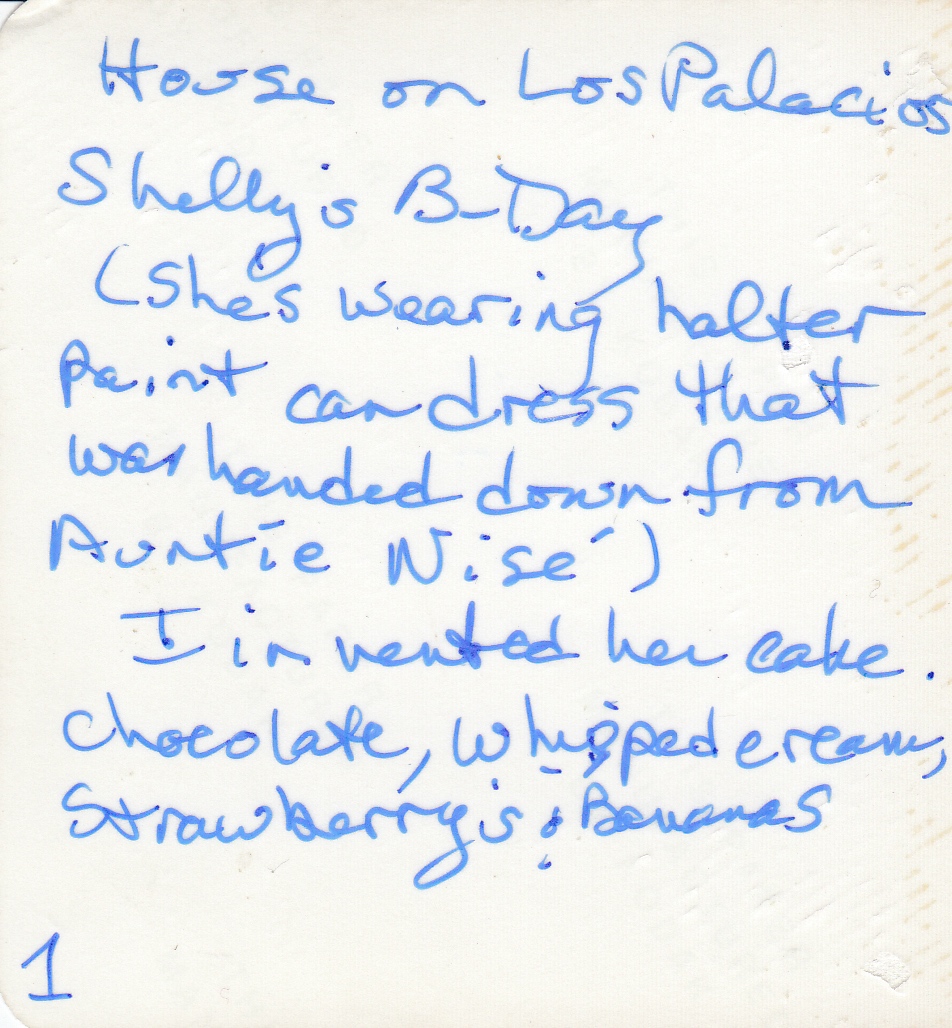 House on Los Palacios
Shelly's B-Day
(She's wearing halter
paint can dress that
was handed down from
Auntie Nisé)
I invented her cake.
Chocolate, whipped cream,
Strawberry's & Bananas
1